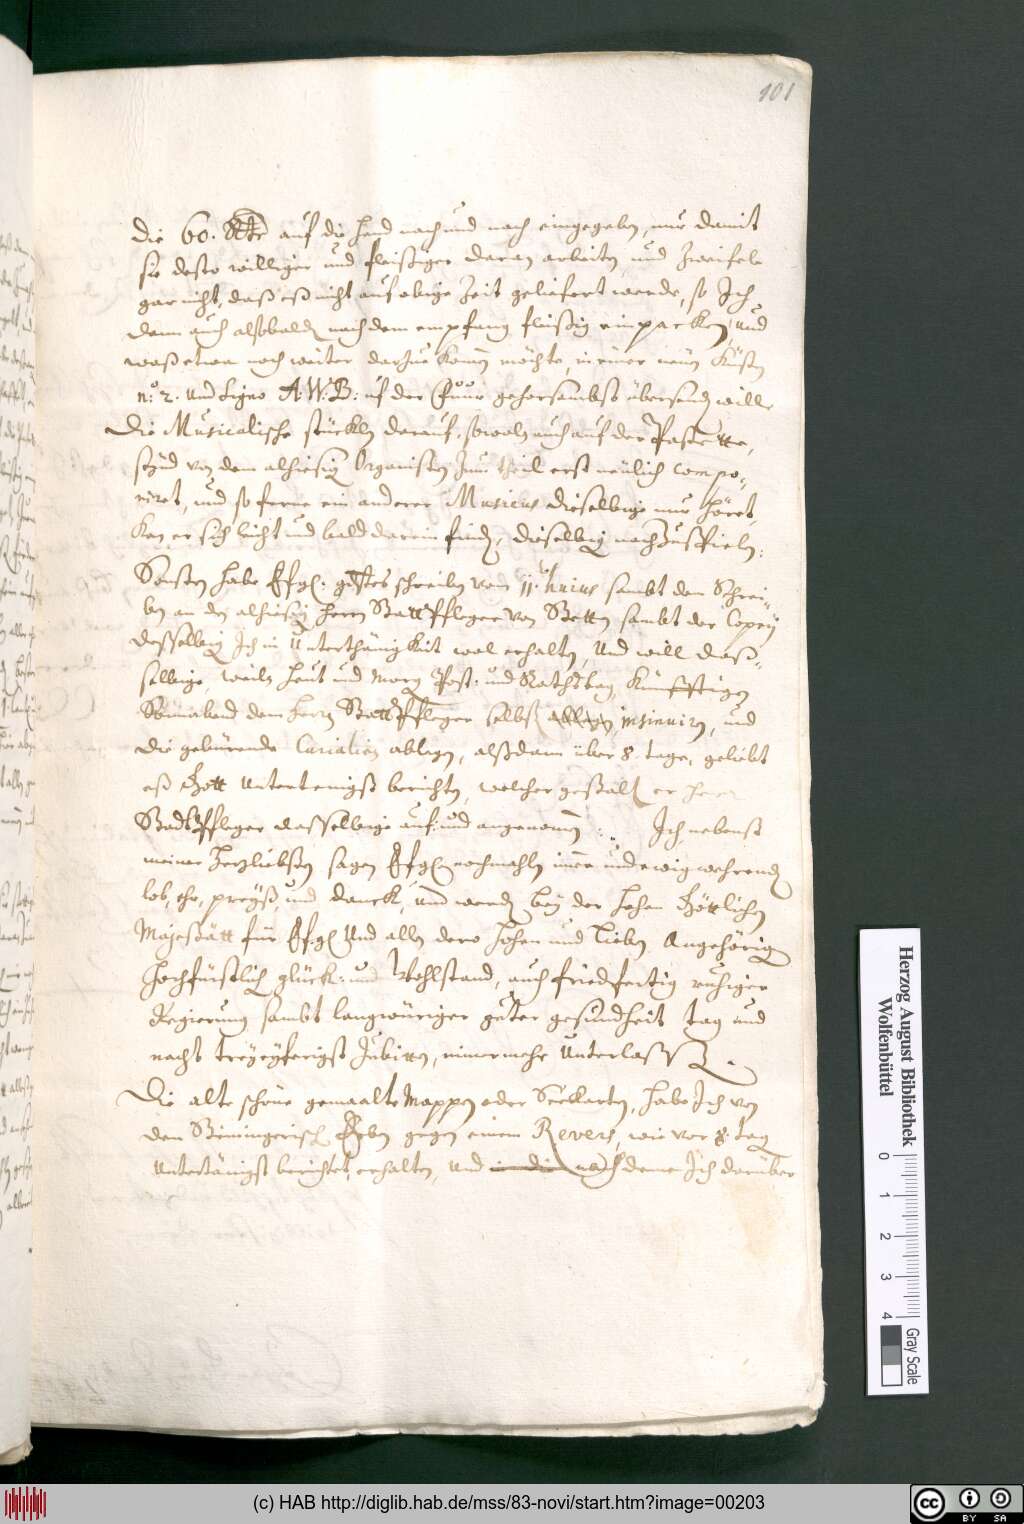 101
die 60. Rtr auf die hand nach und nach eingegeben, nur damit
sie desto williger und fleißiger daran arbeiten, und Zweifele
gar nicht, daß eß nicht auf obige Zeit geliefert werde, so Ich
dann auch alsobalden nach dem empfang fleißig einpacken, und
waß etwan noch weiter darzue kommen möchte, in einer neuen Küsten
n:º 2. und Signo A.W.B: uf der fuur gehorsambst übersenden wille
Die Musicalische stücklen darauf, sowoln auch auf der Pastette,
seynd von dem alhiesigen Organisten Zum theil erst neülich compo-
niret, und so ferne ein anderer Musicus dieselbige nur höret,
Kan er sich leicht und bald darein finden, dieselbige nachzuspielen:
Sonsten habe Efg. gdstes schreiben vom 11. huius sambt dem Schrei-
ben an den alhiesigen Herrn Stattpfleger von Stetten sambt der Copey
desselbigen Ich in Unterthänigkeit wol erhalten, und will das-
selbige, weiln heut und morgen Post: und Rathstag, Künfftigen
Sonnabend dem Herrn Stattpfleger selbst insinuiren, und
die gebürende Curialien ablegen, alßdann über 8. tage, geliebt
eß Gott untertenigst berichten, welcher gestalt er herr
Stadtpfleger dasselbige auf: und angenommen : .. Ich nebenst
meiner Herzliebsten sagen Efg. nochmahln immer und ewig wehrendes
lob, ehr, preyß, und danck, und werden bey der hohen Göttlichen
Majestätt für Efg. Und allen dero hohen und lieben Angehörigen
hochfürstlich glück: und Wohlstand, auch friedfertig ruhiger
Regierung sambt langwüriger guter gesundheit tag und
nacht treüeyferigst zu bitten, nimmermehr Unterlassen.
Die alte schöne gemaalte Mappen oder Seekarten, habe Ich von
den Steiningerischen Erben gegen einem Revers, wie vor 8. tag
untertänigst berichtet, erhalten, und nach deme Ich darüber
Herzog August Bibliothek
Wolfenbüttel
0 1 2 3 4
Gray Scale
(c) HAB http://diglib.hab.de/mss/83-novi/start.htm?image=00203
cc BY SA